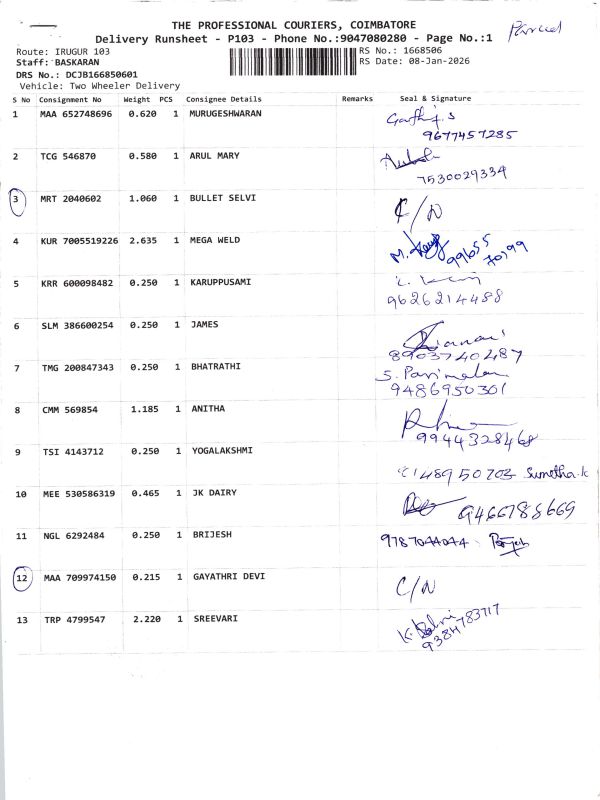 Parcel
THE PROFESSIONAL COURIERS, COIMBATORE
Delivery Runsheet - P103 - Phone No.:9047080280 - Page No.:1
Route: IRUGUR 103 RS No.: 1668506
Staff: BASKARAN RS Date: 08-Jan-2026
DRS No.: DCJB166850601
Vehicle: Two Wheeler Delivery
S No Consignment No Weight PCS Consignee Details Remarks Seal & Signature
1 MAA 652748696 0.620 1 MURUGESHWARAN
9677457285
2 TCG 546870 0.580 1 ARUL MARY
7530029334
3 MRT 2040602 1.060 1 BULLET SELVI C/N
4 KUR 7005519226 2.635 1 MEGA WELD M.
99655
70199
5 KRR 600098482 0.250 1 KARUPPUSAMI
9626214488
6 SLM 386600254 0.250 1 JAMES
8903740487
7 TMG 200847343 0.250 1 BHATRATHI S. Parimalam
9486950301
8 CMM 569854 1.185 1 ANITHA
9944328468
9 TSI 4143712 0.250 1 YOGALAKSHMI
Sumetha.k
10 MEE 530586319 0.465 1 JK DAIRY 9466788669
11 NGL 6292484 0.250 1 BRIJESH
9787044044 Brijesh
12 MAA 709974150 0.215 1 GAYATHRI DEVI C/N
13 TRP 4799547 2.220 1 SREEVARI K.
9384783717